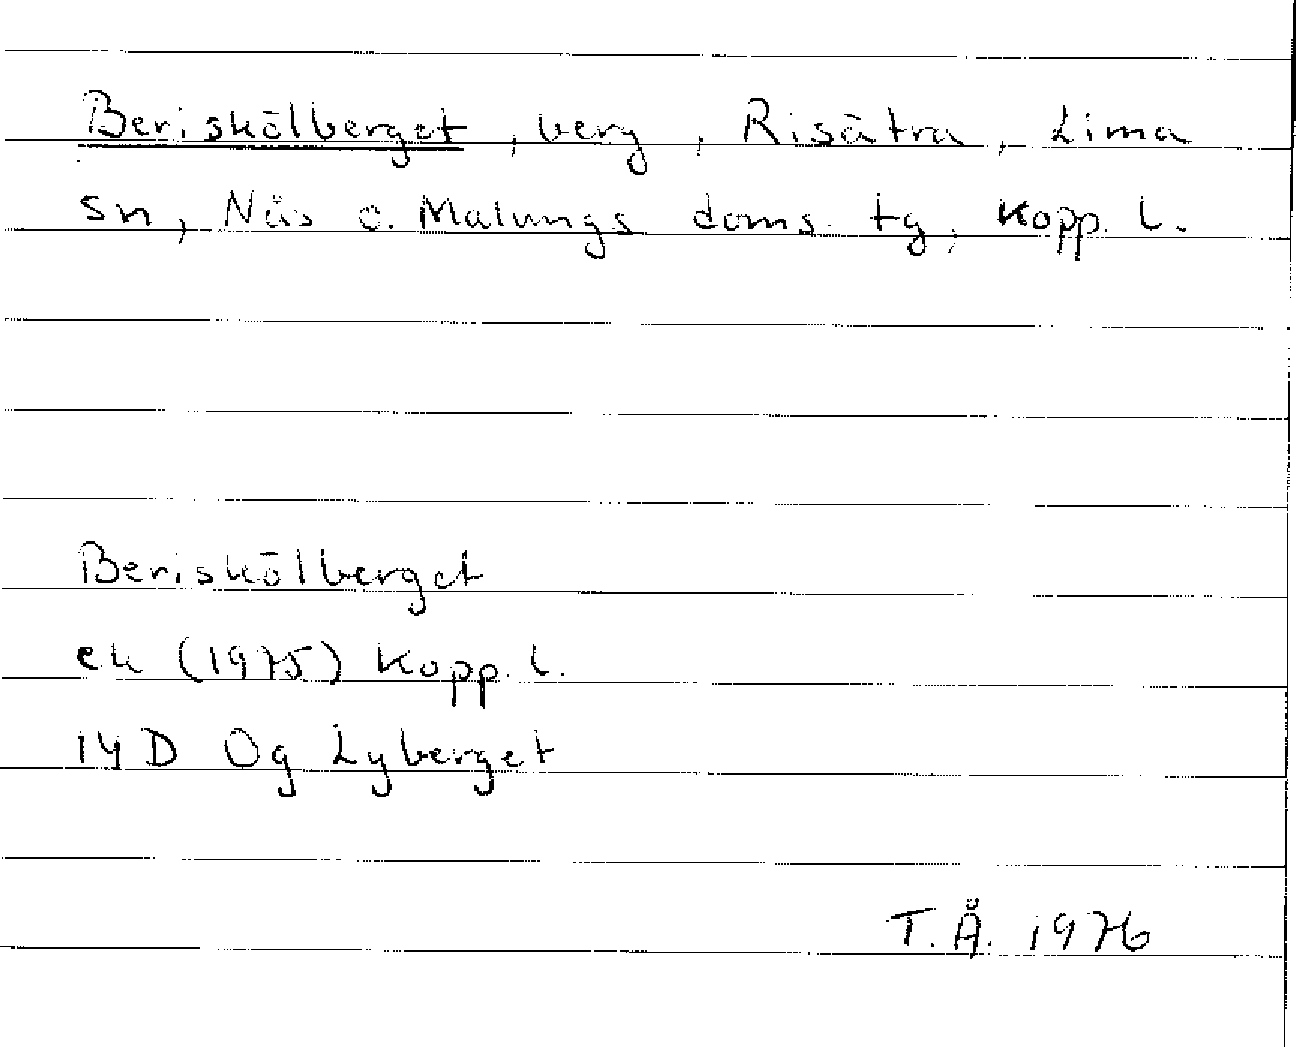 Beriskölberget, berg, Risätra, Lima
sn, Näs o. Malungs doms. tg, Kopp. l.
Beriskölberget
ek (1975) Kopp. l.
14 D 0g Lyberget
T.Å. 1976